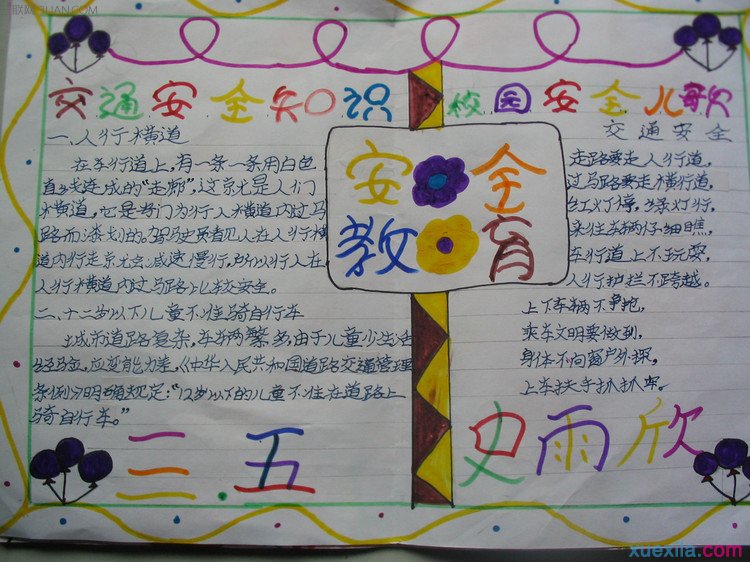 交通安全知识
一、人行横道
在车行道上，有一条一条用白色
直线连成的“走廊”，这就是人行
横道，它是专门为行人横道内过马
路而漆划的。驾驶员看见人在人行横
道内行走就会减速慢行，所以行人在
人行横道内过马路比较安全。
二、十二岁以下儿童不准骑自行车
城市道路复杂，车辆繁多，由于儿童少生活
经验，应变能力差，《中华人民共和国道路交通管理
条例》明确规定：“12岁以下的儿童不准在道路上
骑自行车。”
三.五
安全
教育
校园安全儿歌
交通安全
走路要走人行道，
过马路要走横行道，
红灯停，绿灯行，
来往车辆仔细瞧，
车行道上不玩耍，
人行护拦不跨越。
上下车辆不争抢，
乘车文明要做到，
身体不向窗户外探，
上车扶手抓抓牢。
史雨欣
xuexila.com